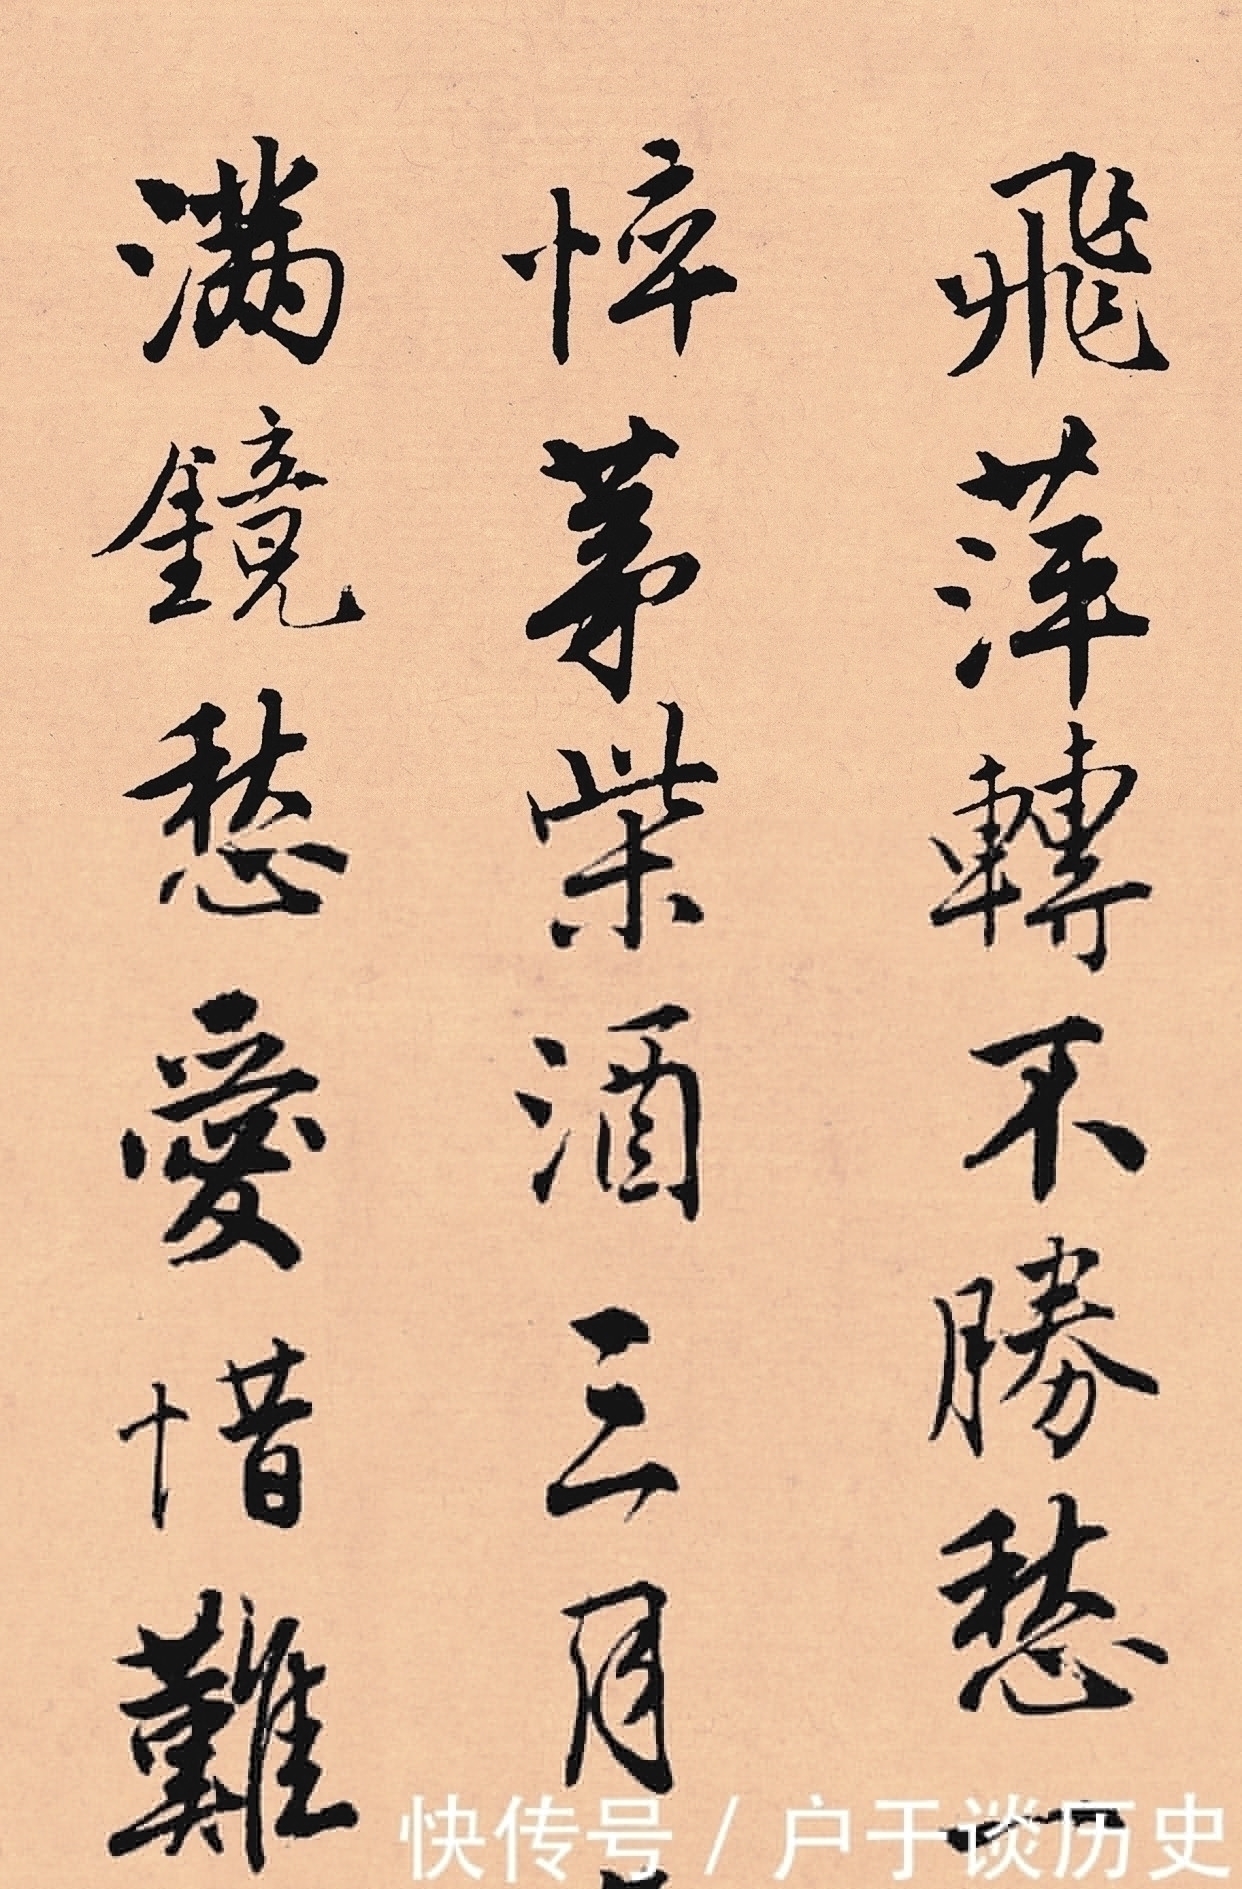 飛萍轉不勝愁一
悴茅柴酒三月
滿鏡愁愛惜難
快传号／户于谈历史